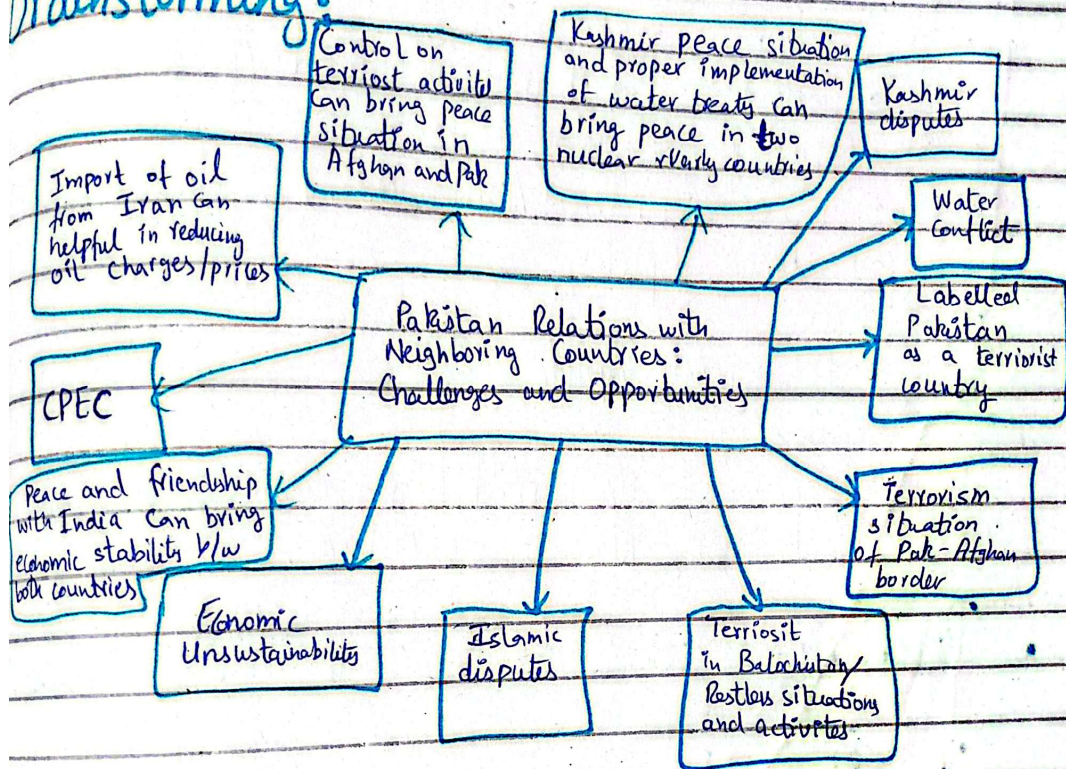 Brainstorming:
Control on
terriost activite
can bring peace
situation in
Afghan and Pak
Kashmir peace situation
and proper implementation
of water treaty can
bring peace in two
nuclear countries
Kashmir
disputes
Import of oil
from Iran Can
helpful in reducing
oil charges/prices
Water
Conflict
Labelled
Pakistan
as a terriorist
country
Pakistan Relations with
Neighboring Countries:
Challenges and Opportunities
CPEC
Peace and friendship
with India Can bring
economic stability b/w
both countries
Terrorism
situation
of Pak-Afghan
border
Economic
Unsustainability
Islamic
disputes
Terriosit
in Balochistan/
Restless situations
and activites